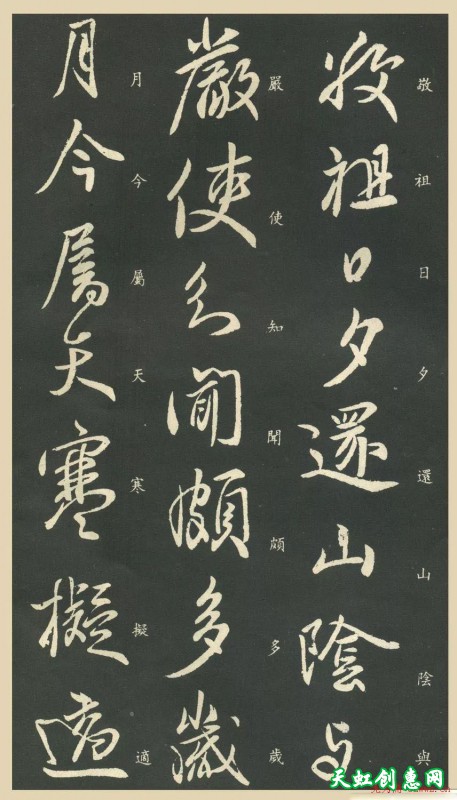 敬祖日夕還山陰與
敬祖日夕還山陰與
嚴使知聞頗多歲
嚴使知聞頗多歲
月今屬天寒擬適
月今屬天寒擬適
天虹创惠网